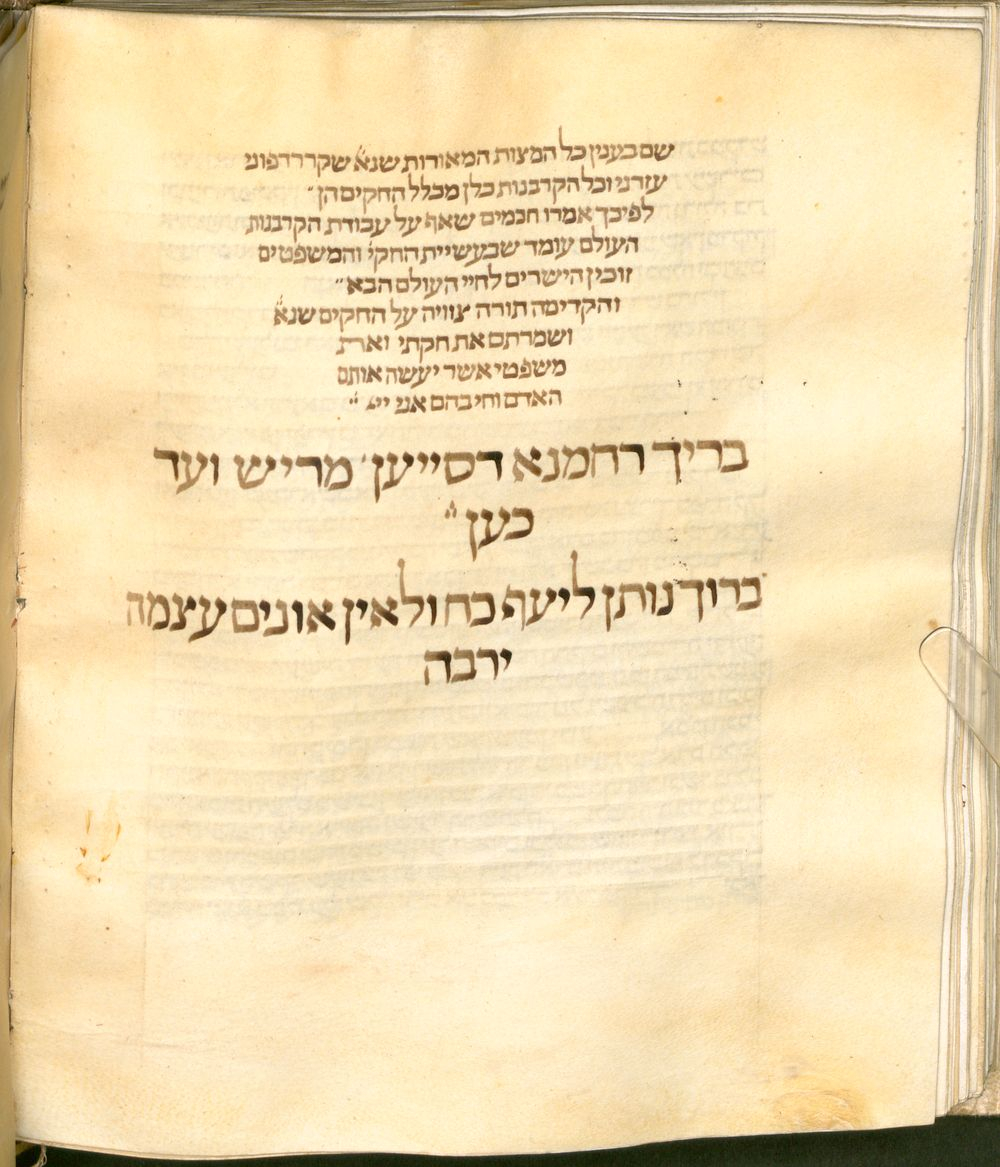 שם בענין כל המצות המאורות שנא שקר רדפוני
עזרני וכל הקרבנות כלן מכלל החקים הן
לפיכך אמרו חכמים שאף על עבודת הקרבנות
העולם עומד שבעשיית החקי׳ והמשפטים
זוכין הישרים לחיי העולם הבא
והקדימה תורה צוויה על החקים שנא
ושמרתם את חקתי ואת
משפטי אשר יעשה אותם
האדם וחי בהם אני ייי
בריך רחמנא דסייען מריש ועד
כען
ברוך נותן ליעף כח ולאין אונים עצמה
ירבה